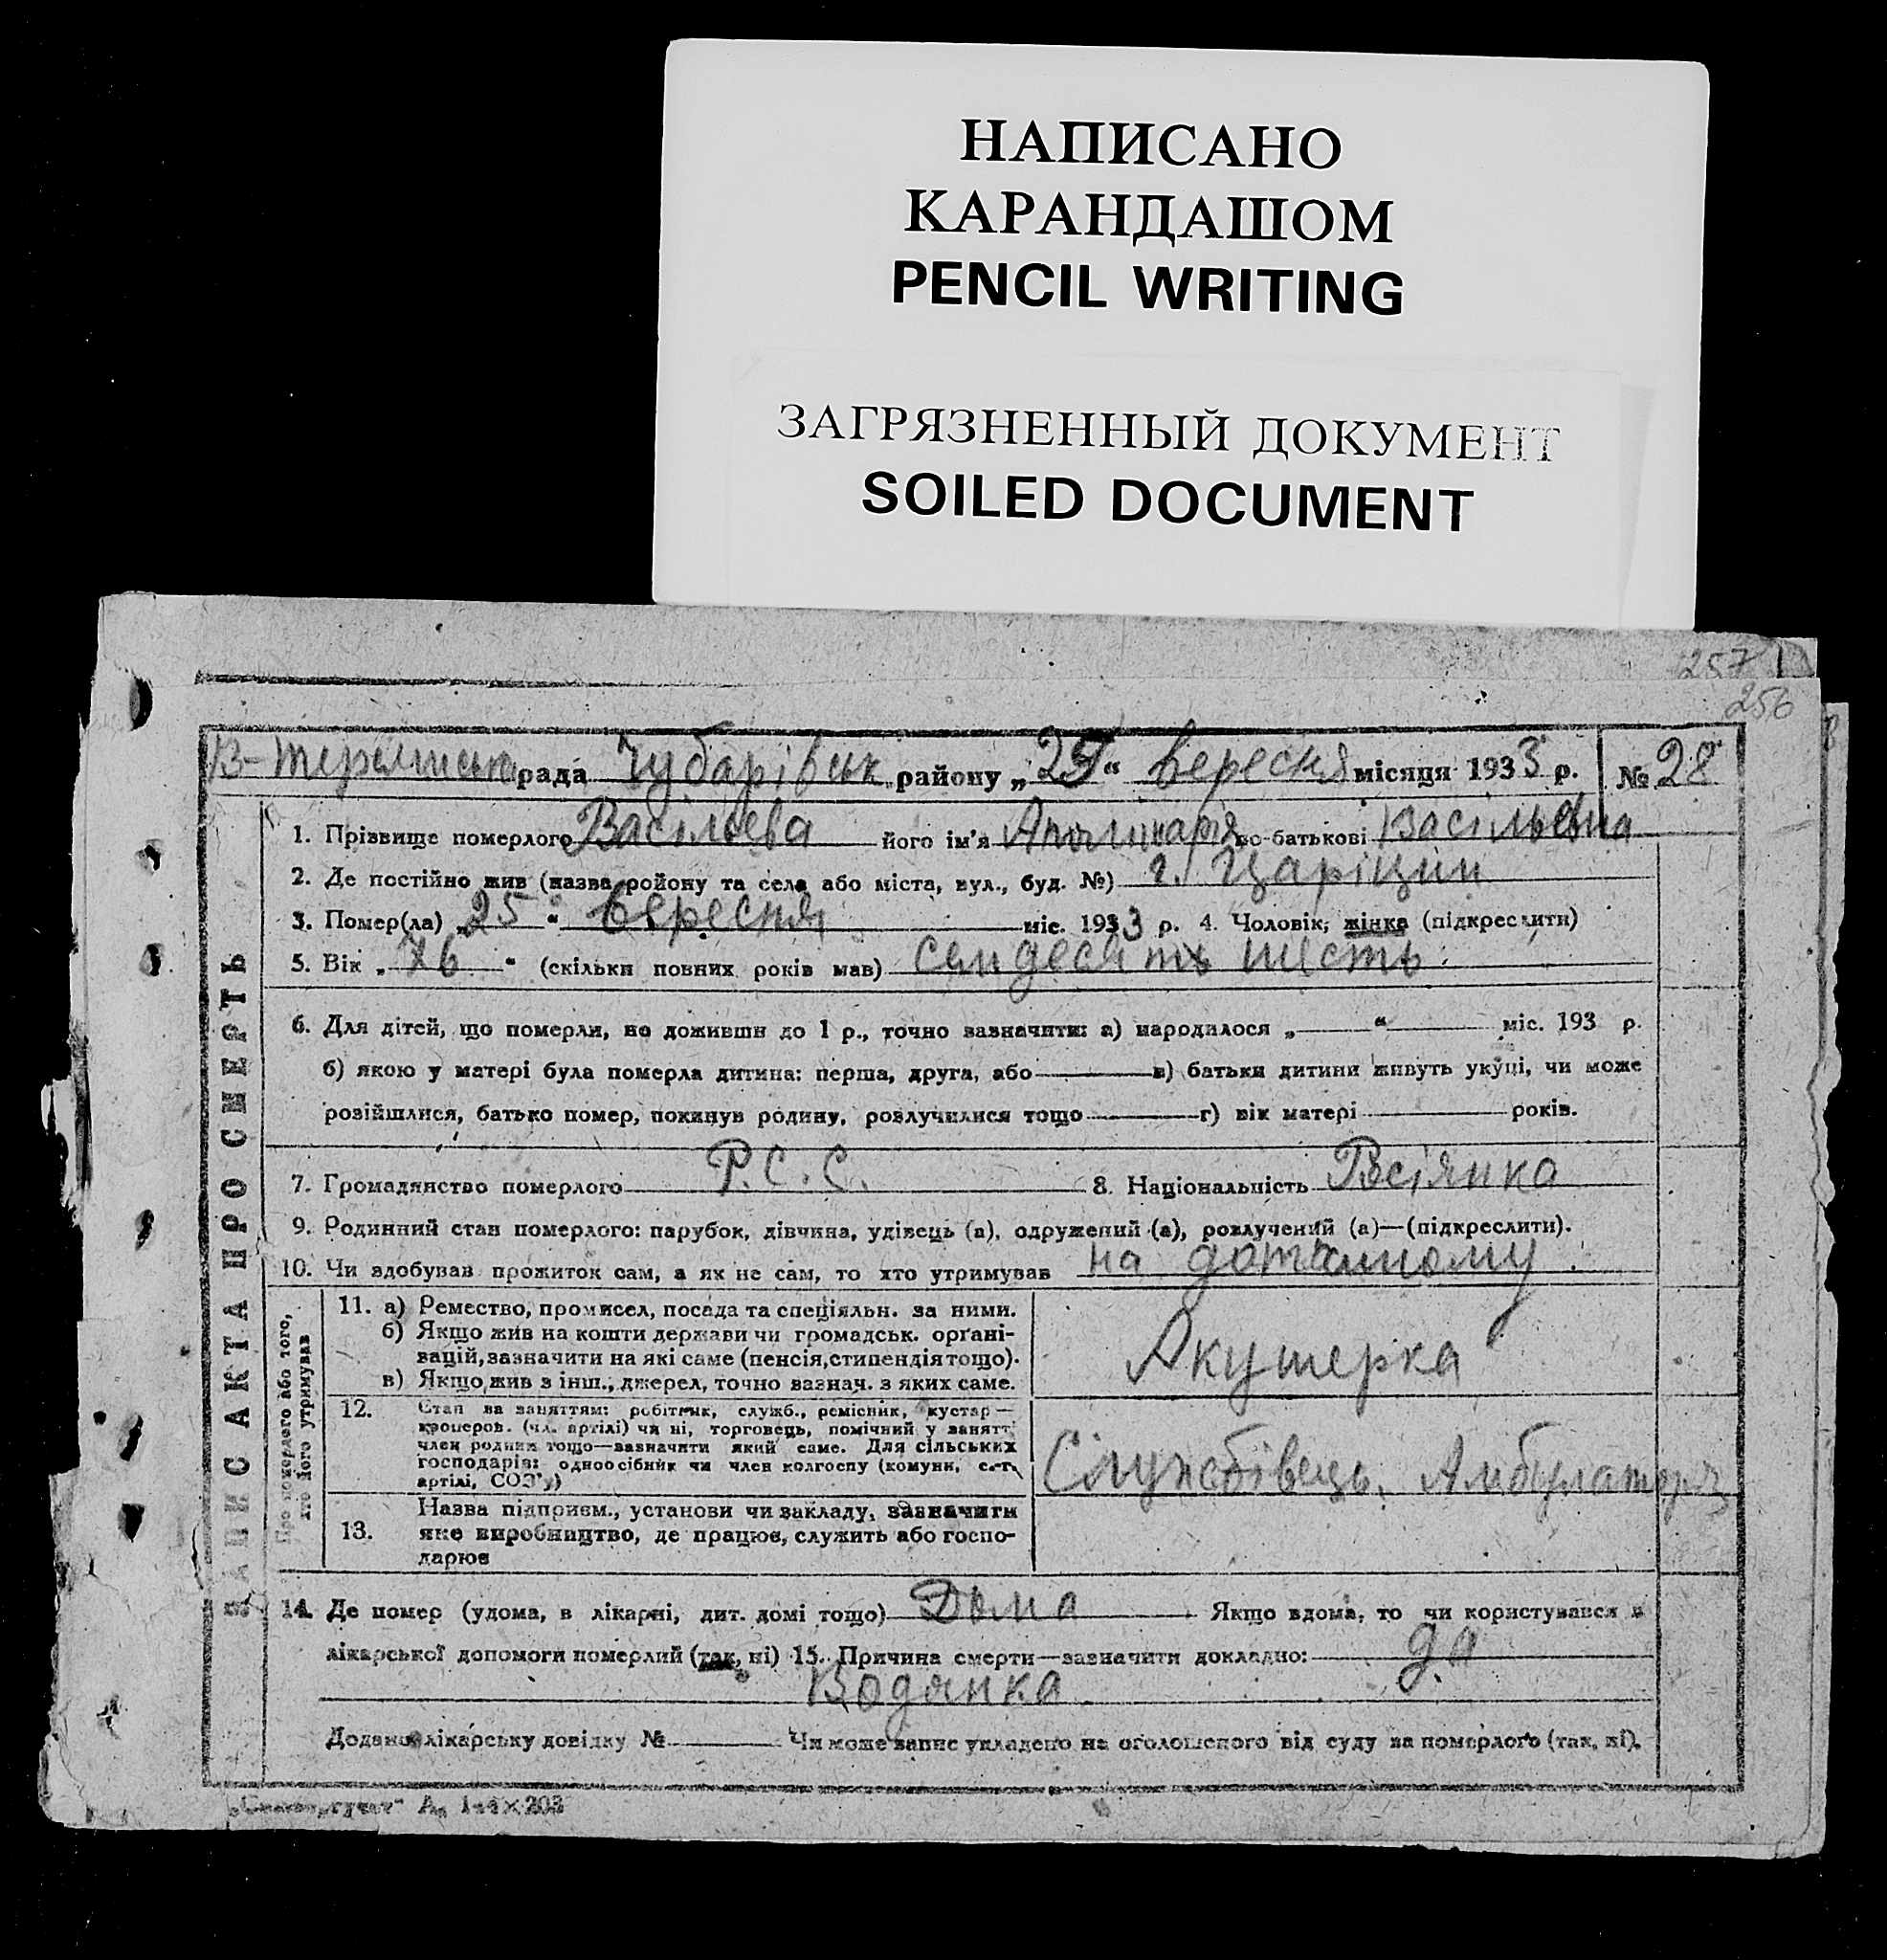 НАПИСАНО
КАРАНДАШОМ
PENCIL WRITING
ЗАГРЯЗНЕННЫЙ ДОКУМЕНТ
SOILED DOCUMENT
257
256
рада Чубарівськ району „ “ вересня місяця 1933 р. № 28
1. Прізвище померлого Васільева його ім'я Аполінарія по-батькові Васільевна
2. Де постійно жив (назва ройону та села або міста, вул., буд. №) г. Царіцин
3. Помер(ла) „25“ вересня міс. 1933 р. 4. Чоловік, жінка (підкреслити)
5. Вік „76“ (скільки повних років мав) семдесять шість
6. Для дітей, що померли, не доживши до 1 р., точно зазначити: а) народилося „ “ міс. 193 р.
б) якою у матері була померла дитина: перша, друга, або в) батьки дитини живуть укупі, чи може
розійшлися, батько помер, покинув родину, розлучилися тощо г) вік матері років.
7. Громадянство померлого Р.С.С. 8. Національність
9. Родинний стан померлого: парубок, дівчина, удівець (а), одружений (а), розлучений (а)—(підкреслити).
10. Чи здобував прожиток сам, а як не сам, то хто утримував на
Про померлого або того,
хто його утримував
11. а) Ремество, промисел, посада та спеціяльн. за ними.
б) Якщо жив на кошти держави чи громадськ. орґані-
зацій, зазначити на які саме (пенсія, стипендія тощо).
в) Якщо жив з інш., джерел, точно зазнач. з яких саме.
Акушерка
12. Стан за заняттям: робітник, служб., ремісник, кустар—
кооперов. (чл. артілі) чи ні, торговець, помічний у занятті
член родини тощо—зазначити який саме. Для сільських
господарів: одноосібник чи член колгоспу (комуни, с.-г.
артілі, СОЗ'у)
Службівець. Амбулаторія
13. Назва підприєм., установи чи закладу, зазначити
яке виробництво, де працює, служить або госпо-
дарює
14. Де помер (удома, в лікарні, дит. домі тощо) Дома Якщо вдома, то чи користувався з
лікарської допомоги померлий (так, ні) 15. Причина смерти—зазначити докладно: да
Водянка
Додано лікарську довідку № Чи може запис укладено на оголошеного від суду за померлого (так, ні).
ЗАПИС АКТА ПРО СМЕРТЬ